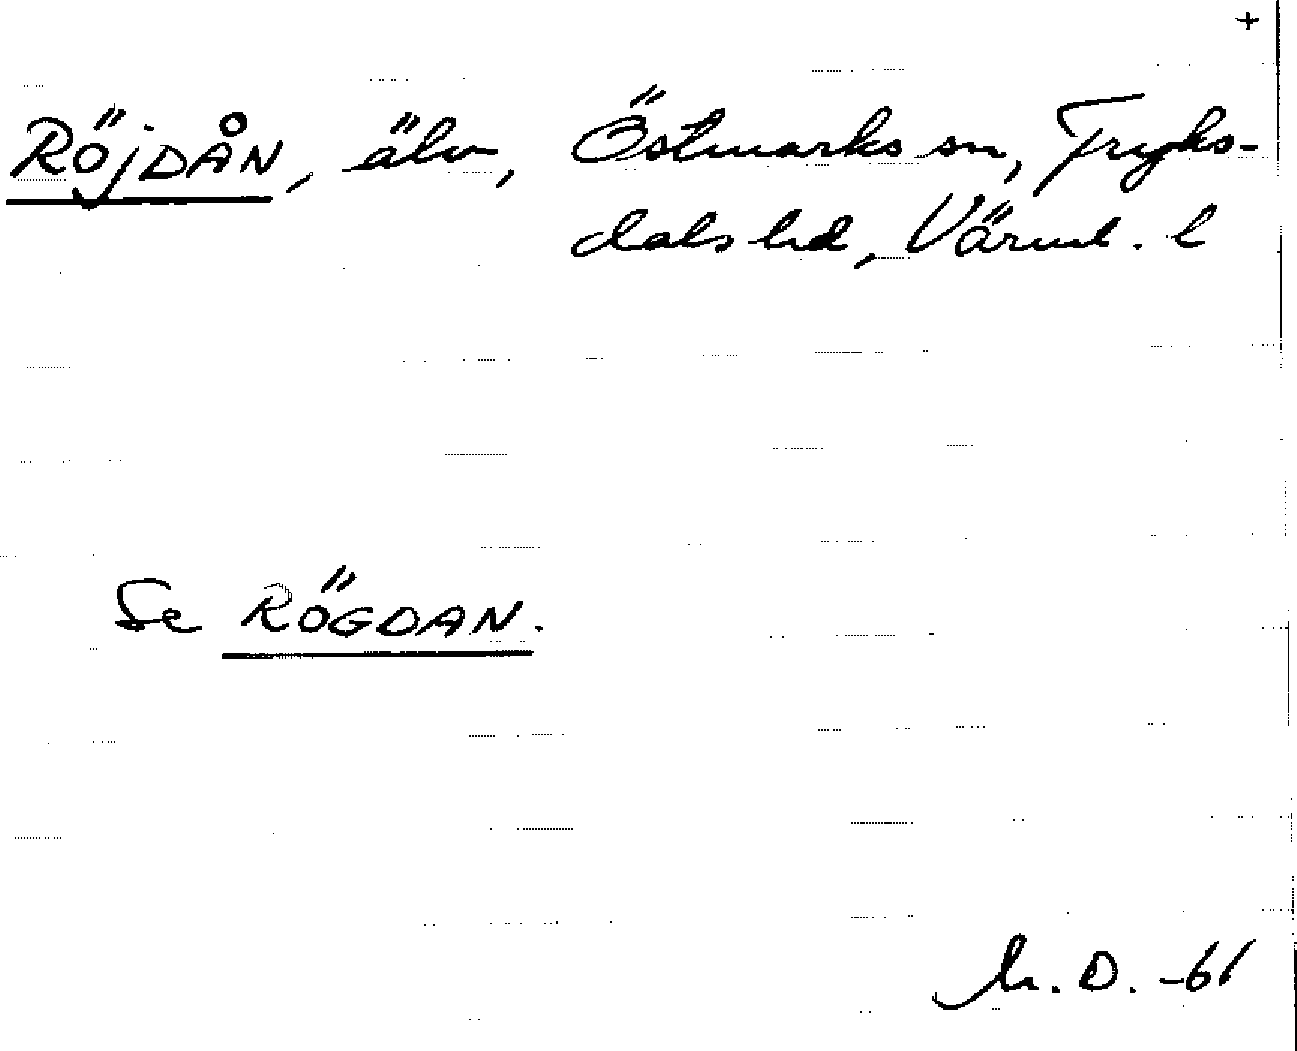 +
RÖJDÅN, älv, Östmarks sn, Fryks-
dals hd, Värml. l
Se RÖGDAN.
D. -61